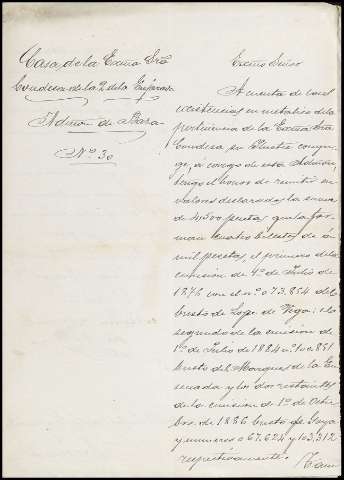 Casa de la Exma Sra
Condesa de la Q. de la Enjarada
Admon de Baza
N.º 30
Excmo Señor
A cuenta de las
existencias en metálico de la
pertenencia de la Exma Sra
Condesa, su Ilustre conyu-
ge, á cargo de esta Admon,
tengo el honor de remitir en
valores declarados la suma
de 4,500 pesetas que la for-
man cuatro billetes de á
mil pesetas, el primero de la
emision de 1.º de Julio de
1876 con el n.º 073.854 del
busto de Lope de Vega: el
segundo de la emision de
1.º de Julio de 1884 n.º 100.851
busto del Marques de la En-
senada y los dos restantes
de la emision de 1.º de Octu-
bre de 1886 busto de Goya
y numeros 067.624 y 103.312
respectivamente.